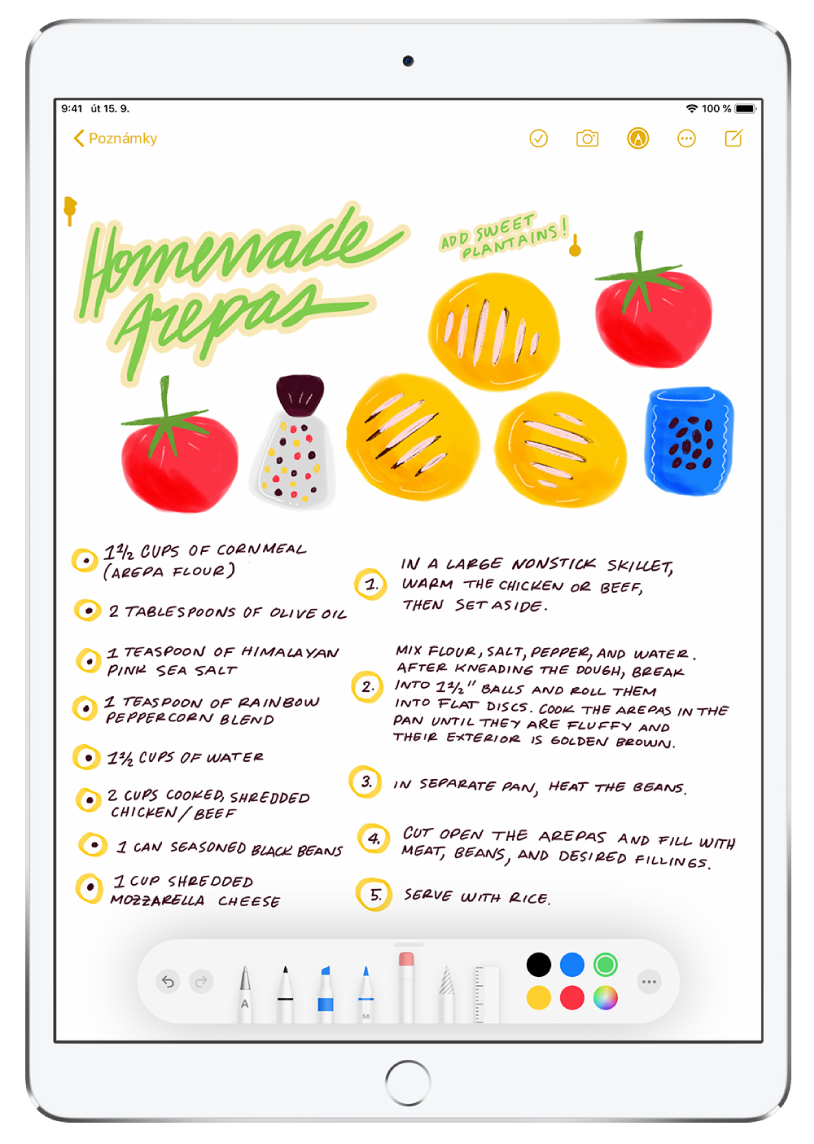 9:41 út 15. 9.
100 %
Poznámky
Homemade
Arepas
ADD SWEET
PLANTAINS!
1 1/2 CUPS OF CORNMEAL
(AREPA FLOUR)
2 TABLESPOONS OF OLIVE OIL
1 TEASPOON OF HIMALAYAN
PINK SEA SALT
1 TEASPOON OF RAINBOW
PEPPERCORN BLEND
1 1/2 CUPS OF WATER
2 CUPS COOKED, SHREDDED
CHICKEN/BEEF
1 CAN SEASONED BLACK BEANS
1 CUP SHREDDED
MOZZARELLA CHEESE
1. IN A LARGE NONSTICK SKILLET,
WARM THE CHICKEN OR BEEF,
THEN SET ASIDE.
2. MIX FLOUR, SALT, PEPPER, AND WATER.
AFTER KNEADING THE DOUGH, BREAK
INTO 1 1/2" BALLS AND ROLL THEM
INTO FLAT DISCS. COOK THE AREPAS IN THE
PAN UNTIL THEY ARE FLUFFY AND
THEIR EXTERIOR IS GOLDEN BROWN.
3. IN SEPARATE PAN, HEAT THE BEANS.
4. CUT OPEN THE AREPAS AND FILL WITH
MEAT, BEANS, AND DESIRED FILLINGS.
5. SERVE WITH RICE.
A
50